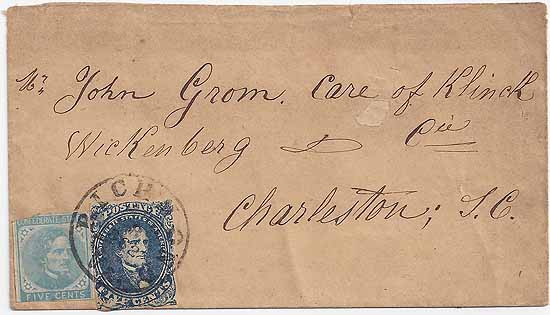 Mr John Grom. Care of Klinck
Wickenberg & Cie
Charleston, S.C.
CONFEDERATE ST
FIVE CENTS
POSTAGE
CONFEDERATE STATES OF AMERICA
FIVE CENTS